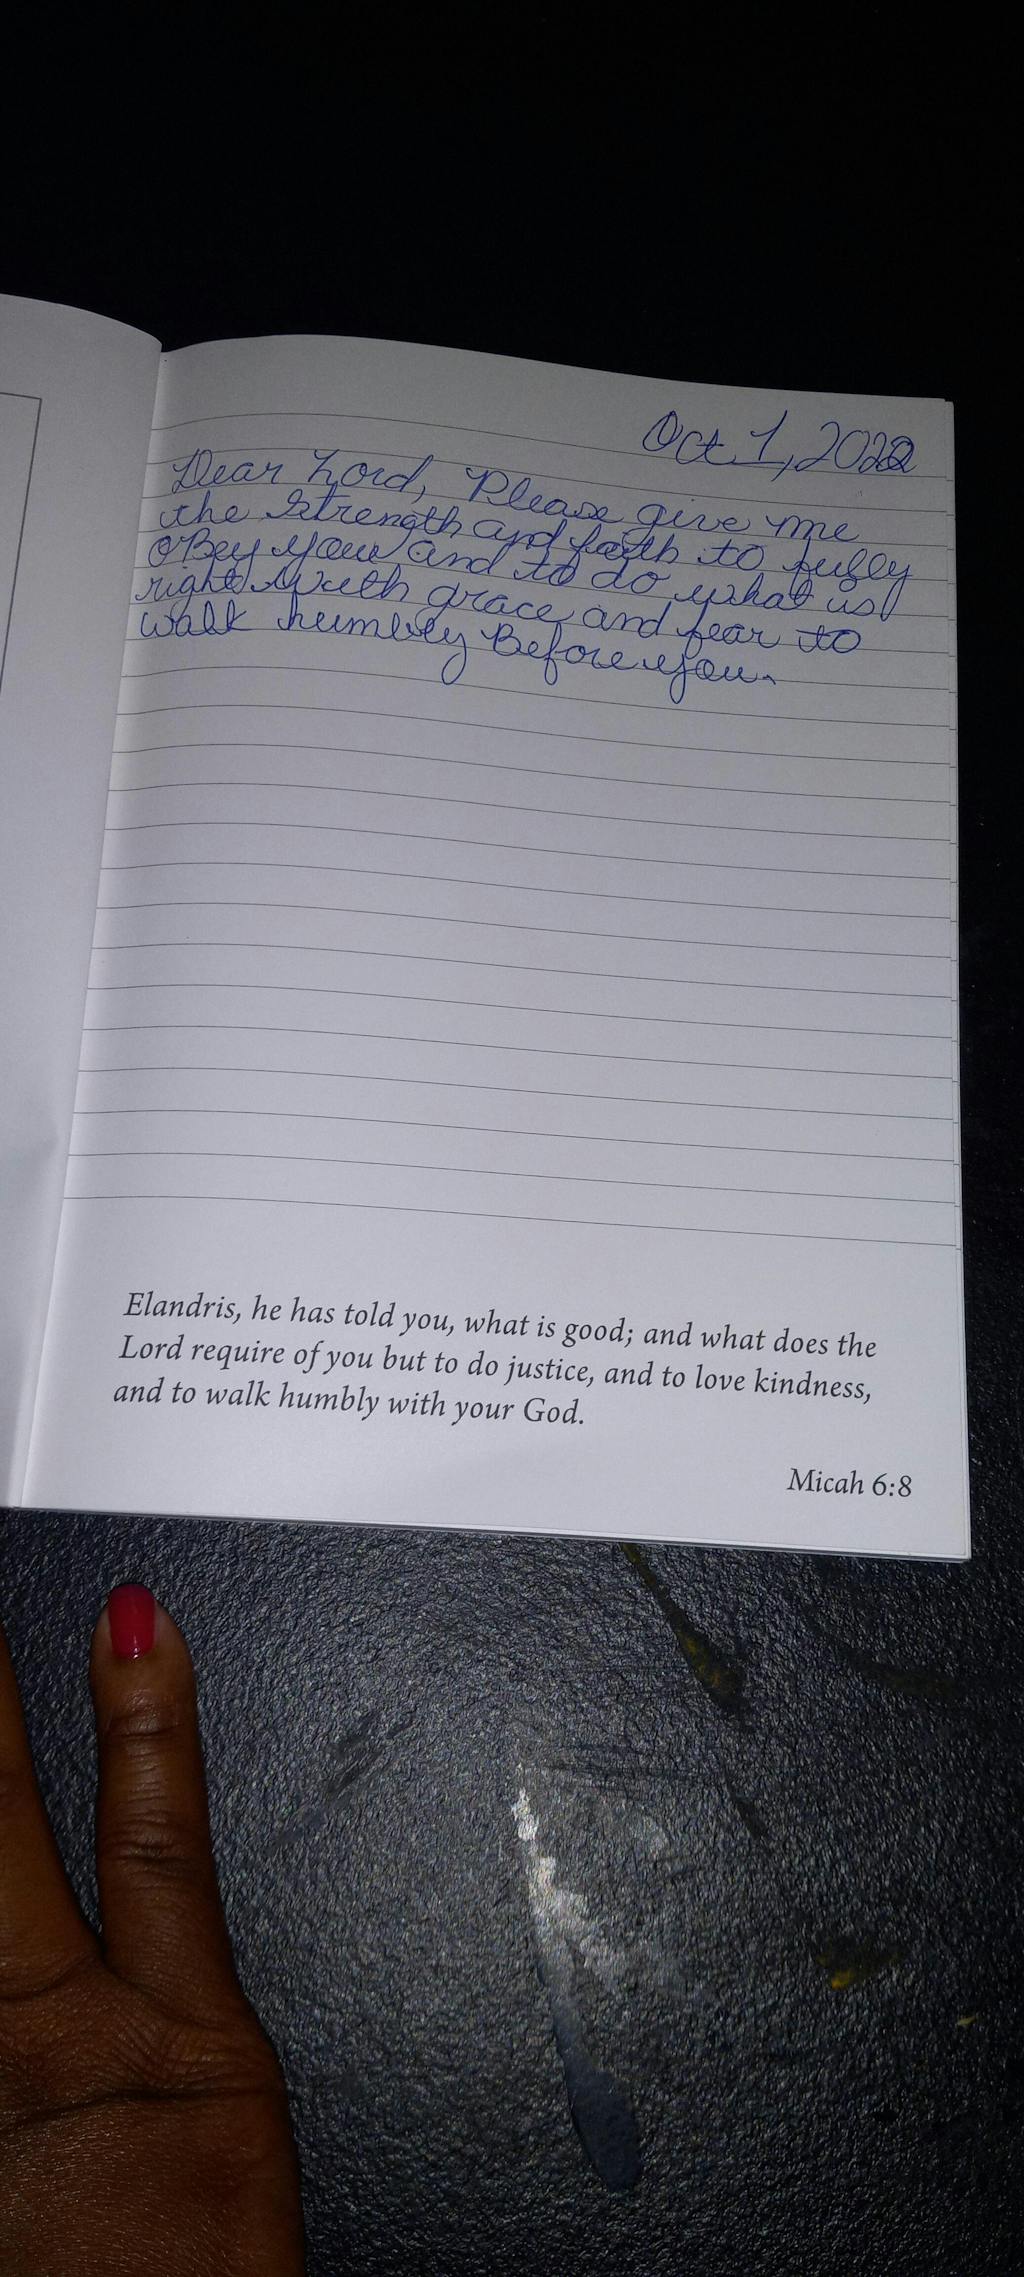 Oct 1, 2022
Dear Lord, Please give me
the strength and faith to fully
oBey you and to do what is
right with grace and fear to
walk humbly Before you.
Elandris, he has told you, what is good; and what does the
Lord require of you but to do justice, and to love kindness,
and to walk humbly with your God.
Micah 6:8